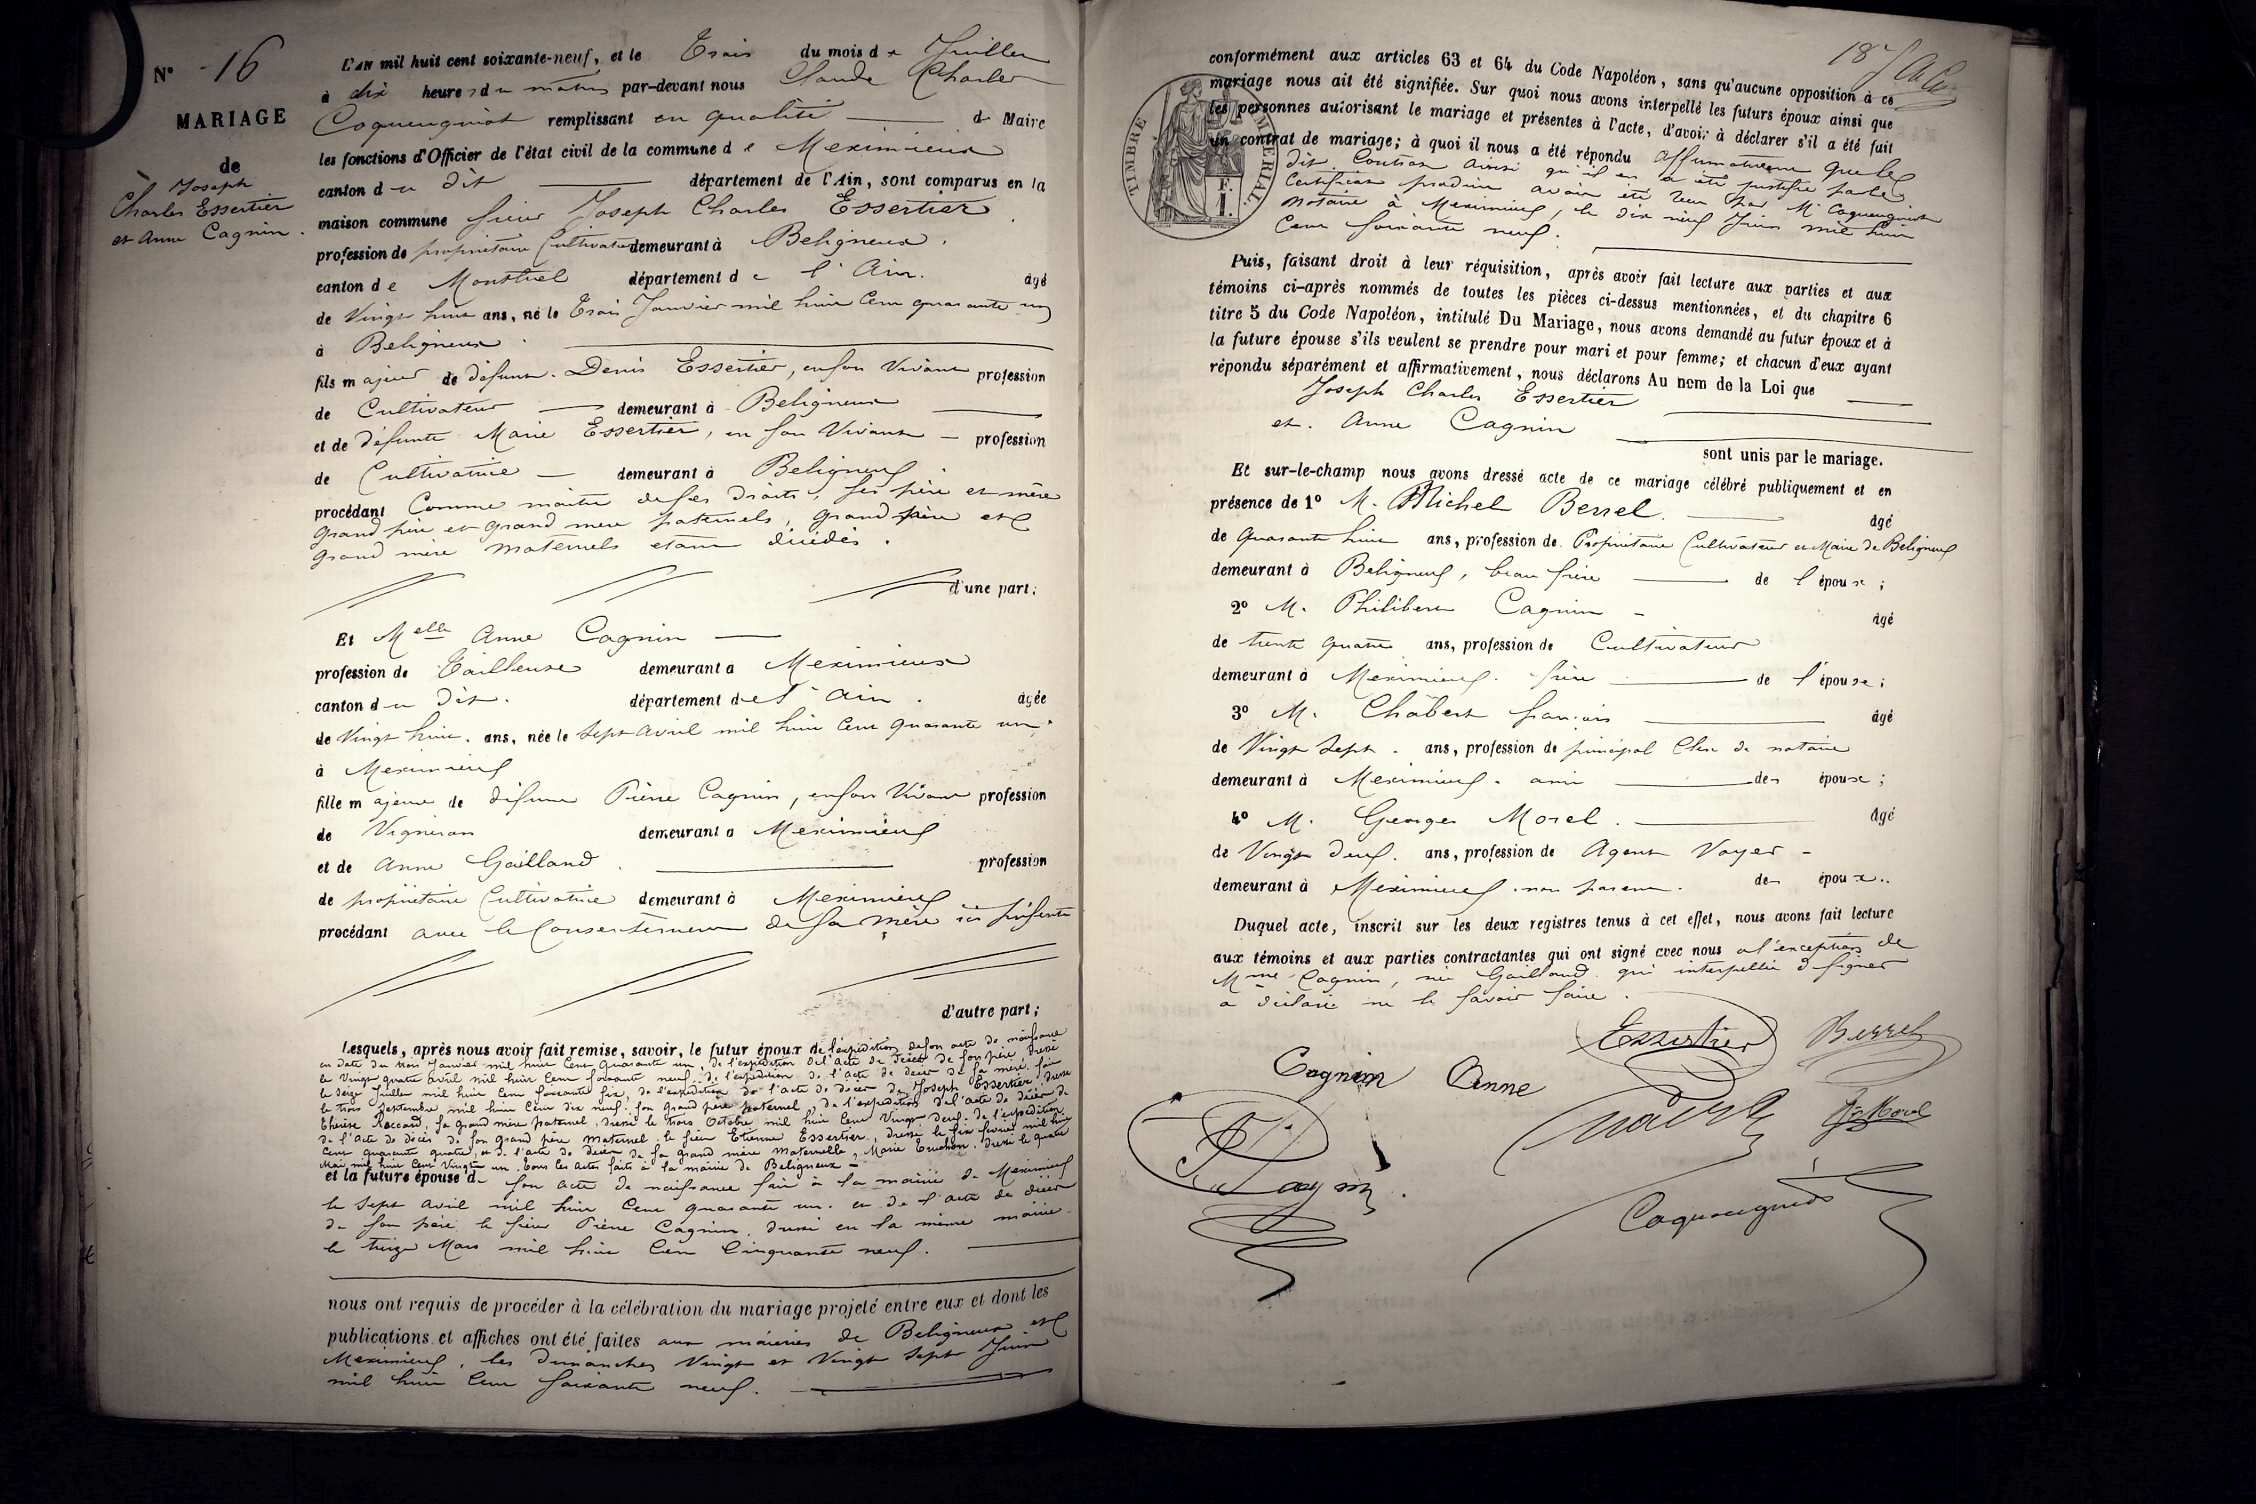 N° 16
MARIAGE
de
Joseph
Charles Essertier
et Anne Cagnin.
L'AN mil huit cent soixante-neuf, et le Trois du mois de Juillet
à dix heures du matin par-devant nous Claude Charles
Coquengniot remplissant en qualité de Maire
les fonctions d'Officier de l'état civil de la commune de Meximieux
canton du dit département de l'Ain, sont comparus en la
maison commune sieur Joseph Charles Essertier
profession de propriétaire Cultivateur demeurant à Beligneux.
canton de Montluel département de l'Ain. âgé
de Vingt huit ans, né le Trois Janvier mil huit Cent quarante un
à Beligneux.
fils majeur de défunt. Denis Essertier, en son Vivant profession
de Cultivateur demeurant à Beligneux
et de défunte Marie Essertier, en son Vivant profession
de Cultivatrice demeurant à Beligneux.
procédant Comme maître de ses droits, ses père et mère
grand père et grand mère paternels, grand père et
grand mère maternels étant décédés.
d'une part;
Et Melle Anne Cagnin
profession de Tailleuse demeurant à Meximieux
canton du Dit. département de l'Ain. âgée
de Vingt huit. ans, née le Sept Avril mil huit Cent quarante un.
à Meximieux
fille majeure de défunt Pierre Cagnin, en son Vivant profession
de Vigneron demeurant à Meximieux
et de Anne Gailland. profession
de propriétaire Cultivatrice demeurant à Meximieux
procédant avec le Consentement de sa mère ici présente
d'autre part;
Lesquels, après nous avoir fait remise, savoir, le futur époux de l'expédition de son acte de naissance
en date du trois Janvier mil huit Cent quarante un, de l'expédition de l'acte de décès de son père dressé
le Vingt quatre avril mil huit Cent soixante neuf, de l'expédition de l'acte de décès de sa mère fait
le seize Juillet mil huit Cent soixante six, de l'expédition de l'acte de décès de Joseph Essertier dressé
le trois Septembre mil huit Cent dix neuf. son grand père paternel, de l'expédition de l'acte de décès de
Thérèse Raccard, sa grand mère paternel, dressé le trois Octobre mil huit Cent Vingt Deux. de l'expédition
de l'acte de décès de son grand père maternel le sieur Etienne Essertier, dressé le six février mil huit
Cent quarante quatre, et de l'acte de décès de sa grand mère maternelle, Marie Truchon, dressé le quatre
Mai mil huit Cent Vingt un. Tous les actes faits à la mairie de Beligneux
et la future épouse de son acte de naissance fait à la mairie de Meximieux
le Sept Avril mil huit Cent quarante un. et de l'acte de décès
de son père le sieur Pierre Cagnin, dressé en la même mairie
le treize Mars mil huit Cent Cinquante neuf.
nous ont requis de procéder à la célébration du mariage projeté entre eux et dont les
publications et affiches ont été faites aux mairies de Beligneux et
Meximieux, les dimanches Vingt et Vingt Sept Juin
mil huit Cent soixante neuf.
TIMBRE IMPÉRIAL
F.
1.
conformément aux articles 63 et 64 du Code Napoléon, sans qu'aucune opposition à ce
mariage nous ait été signifiée. Sur quoi nous avons interpellé les futurs époux ainsi que
les personnes autorisant le mariage et présentes à l'acte, d'avoir à déclarer s'il a été fait
un contrat de mariage; à quoi il nous a été répondu affirmativement que le
dit Contrat ainsi qu'il en a été justifié par le
Certificat produit avoir été reçu par Me Coquengniot
notaire à Meximieux, le dix neuf Juin mil huit
Cent soixante neuf.
Puis, faisant droit à leur réquisition, après avoir fait lecture aux parties et aux
témoins ci-après nommés de toutes les pièces ci-dessus mentionnées, et du chapitre 6
titre 5 du Code Napoléon, intitulé Du Mariage, nous avons demandé au futur époux et à
la future épouse s'ils veulent se prendre pour mari et pour femme; et chacun d'eux ayant
répondu séparément et affirmativement, nous déclarons Au nom de la Loi que
Joseph Charles Essertier
et. Anne Cagnin
sont unis par le mariage.
Et sur-le-champ nous avons dressé acte de ce mariage célébré publiquement et en
présence de 1° M. Michel Berrel. âgé
de Quarante huit ans, profession de Propriétaire Cultivateur et Maire de Beligneux
demeurant à Beligneux, beau frère de l'épouse;
2° M. Philibert Cagnin âgé
de trente quatre ans, profession de Cultivateur
demeurant à Meximieux. frère de l'épouse;
3° M. Chabert françois âgé
de Vingt Sept. ans, profession de principal Clerc de notaire
demeurant à Meximieux. ami des époux;
4° M. Georges Morel. âgé
de Vingt deux. ans, profession de Agent Voyer
demeurant à Meximieux. non parent. des époux.
Duquel acte, inscrit sur les deux registres tenus à cet effet, nous avons fait lecture
aux témoins et aux parties contractantes qui ont signé avec nous à l'exception de
Mme Cagnin, née Gailland qui interpellée de signer
a déclaré ne le savoir faire.
Essertier Berrel
Cagnin Anne
Morel
Cagnin
Coquengniot